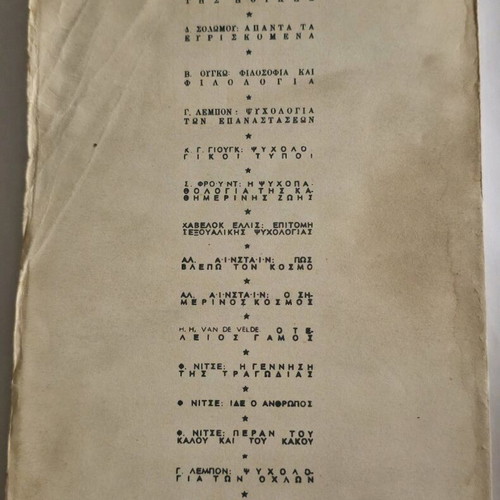 ΤΗΣ
★
Δ. ΣΟΛΩΜΟΥ: ΑΠΑΝΤΑ ΤΑ
ΕΥΡΙΣΚΟΜΕΝΑ
★
Β. ΟΥΓΚΩ: ΦΙΛΟΣΟΦΙΑ ΚΑΙ
ΦΙΛΟΛΟΓΙΑ
★
Γ. ΛΕΜΠΟΝ: ΨΥΧΟΛΟΓΙΑ
ΤΩΝ ΕΠΑΝΑΣΤΑΣΕΩΝ
★
Κ. Γ. ΓΙΟΥΓΚ: ΨΥΧΟΛΟ-
ΓΙΚΟΙ ΤΥΠΟΙ
★
Σ. ΦΡΟ·Υ·ΝΤ: Η ΨΥΧΟΠΑ-
ΘΟΛΟΓΙΑ ΤΗΣ ΚΑ-
ΘΗΜΕΡΙΝΗΣ ΖΩΗΣ
★
ΧΑΒΕΛΟΚ ΕΛΛΙΣ: ΕΠΙΤΟΜΗ
ΣΕΞΟΥΑΛΙΚΗΣ ΨΥΧΟΛΟΓΙΑΣ
★
ΑΛ. Α·Ι·ΝΣΤΑ·Ι·Ν: ΠΩΣ
ΒΛΕΠΩ ΤΟΝ ΚΟΣΜΟ
★
ΑΛ. Α·Ι·ΝΣΤΑ·Ι·Ν: Ο ΣΗ-
ΜΕΡΙΝΟΣ ΚΟΣΜΟΣ
★
H. H. VAN DE VELDE: Ο ΤΕ-
ΛΕΙΟΣ ΓΑΜΟΣ
★
Φ. ΝΙΤΣΕ: Η ΓΕΝΝΗΣΗ
ΤΗΣ ΤΡΑΓΩΔΙΑΣ
★
Φ ΝΙΤΣΕ: ΙΔΕ Ο ΑΝΘΡΩΠΟΣ
★
Φ. ΝΙΤΣΕ: ΠΕΡΑΝ ΤΟΥ
ΚΑΛΟΥ ΚΑΙ ΤΟΥ ΚΑΚΟΥ
★
Γ. ΛΕΜΠΟΝ: ΨΥΧΟΛΟ-
ΓΙΑ ΤΩΝ ΟΧΛΩΝ
★